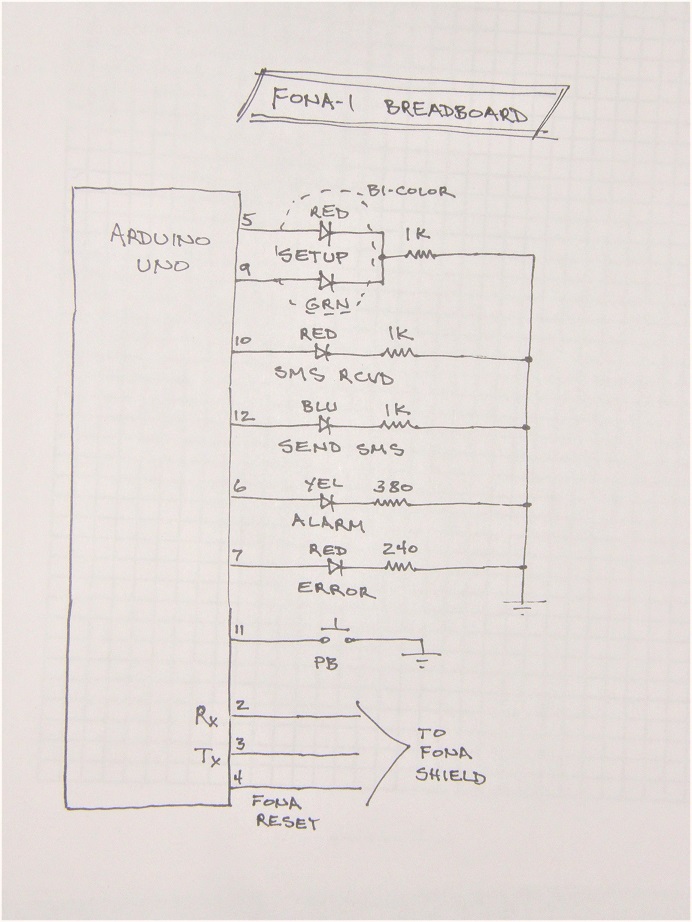 FONA-1 BREADBOARD
BI-COLOR
ARDUINO
UNO
5
RED
1K
SETUP
9
GRN
10
RED
1K
SMS RCVD
12
BLU
1K
SEND SMS
6
YEL
380
ALARM
7
RED
240
ERROR
11
PB
Rx
2
Tx
3
4
TO
FONA
SHIELD
FONA
RESET